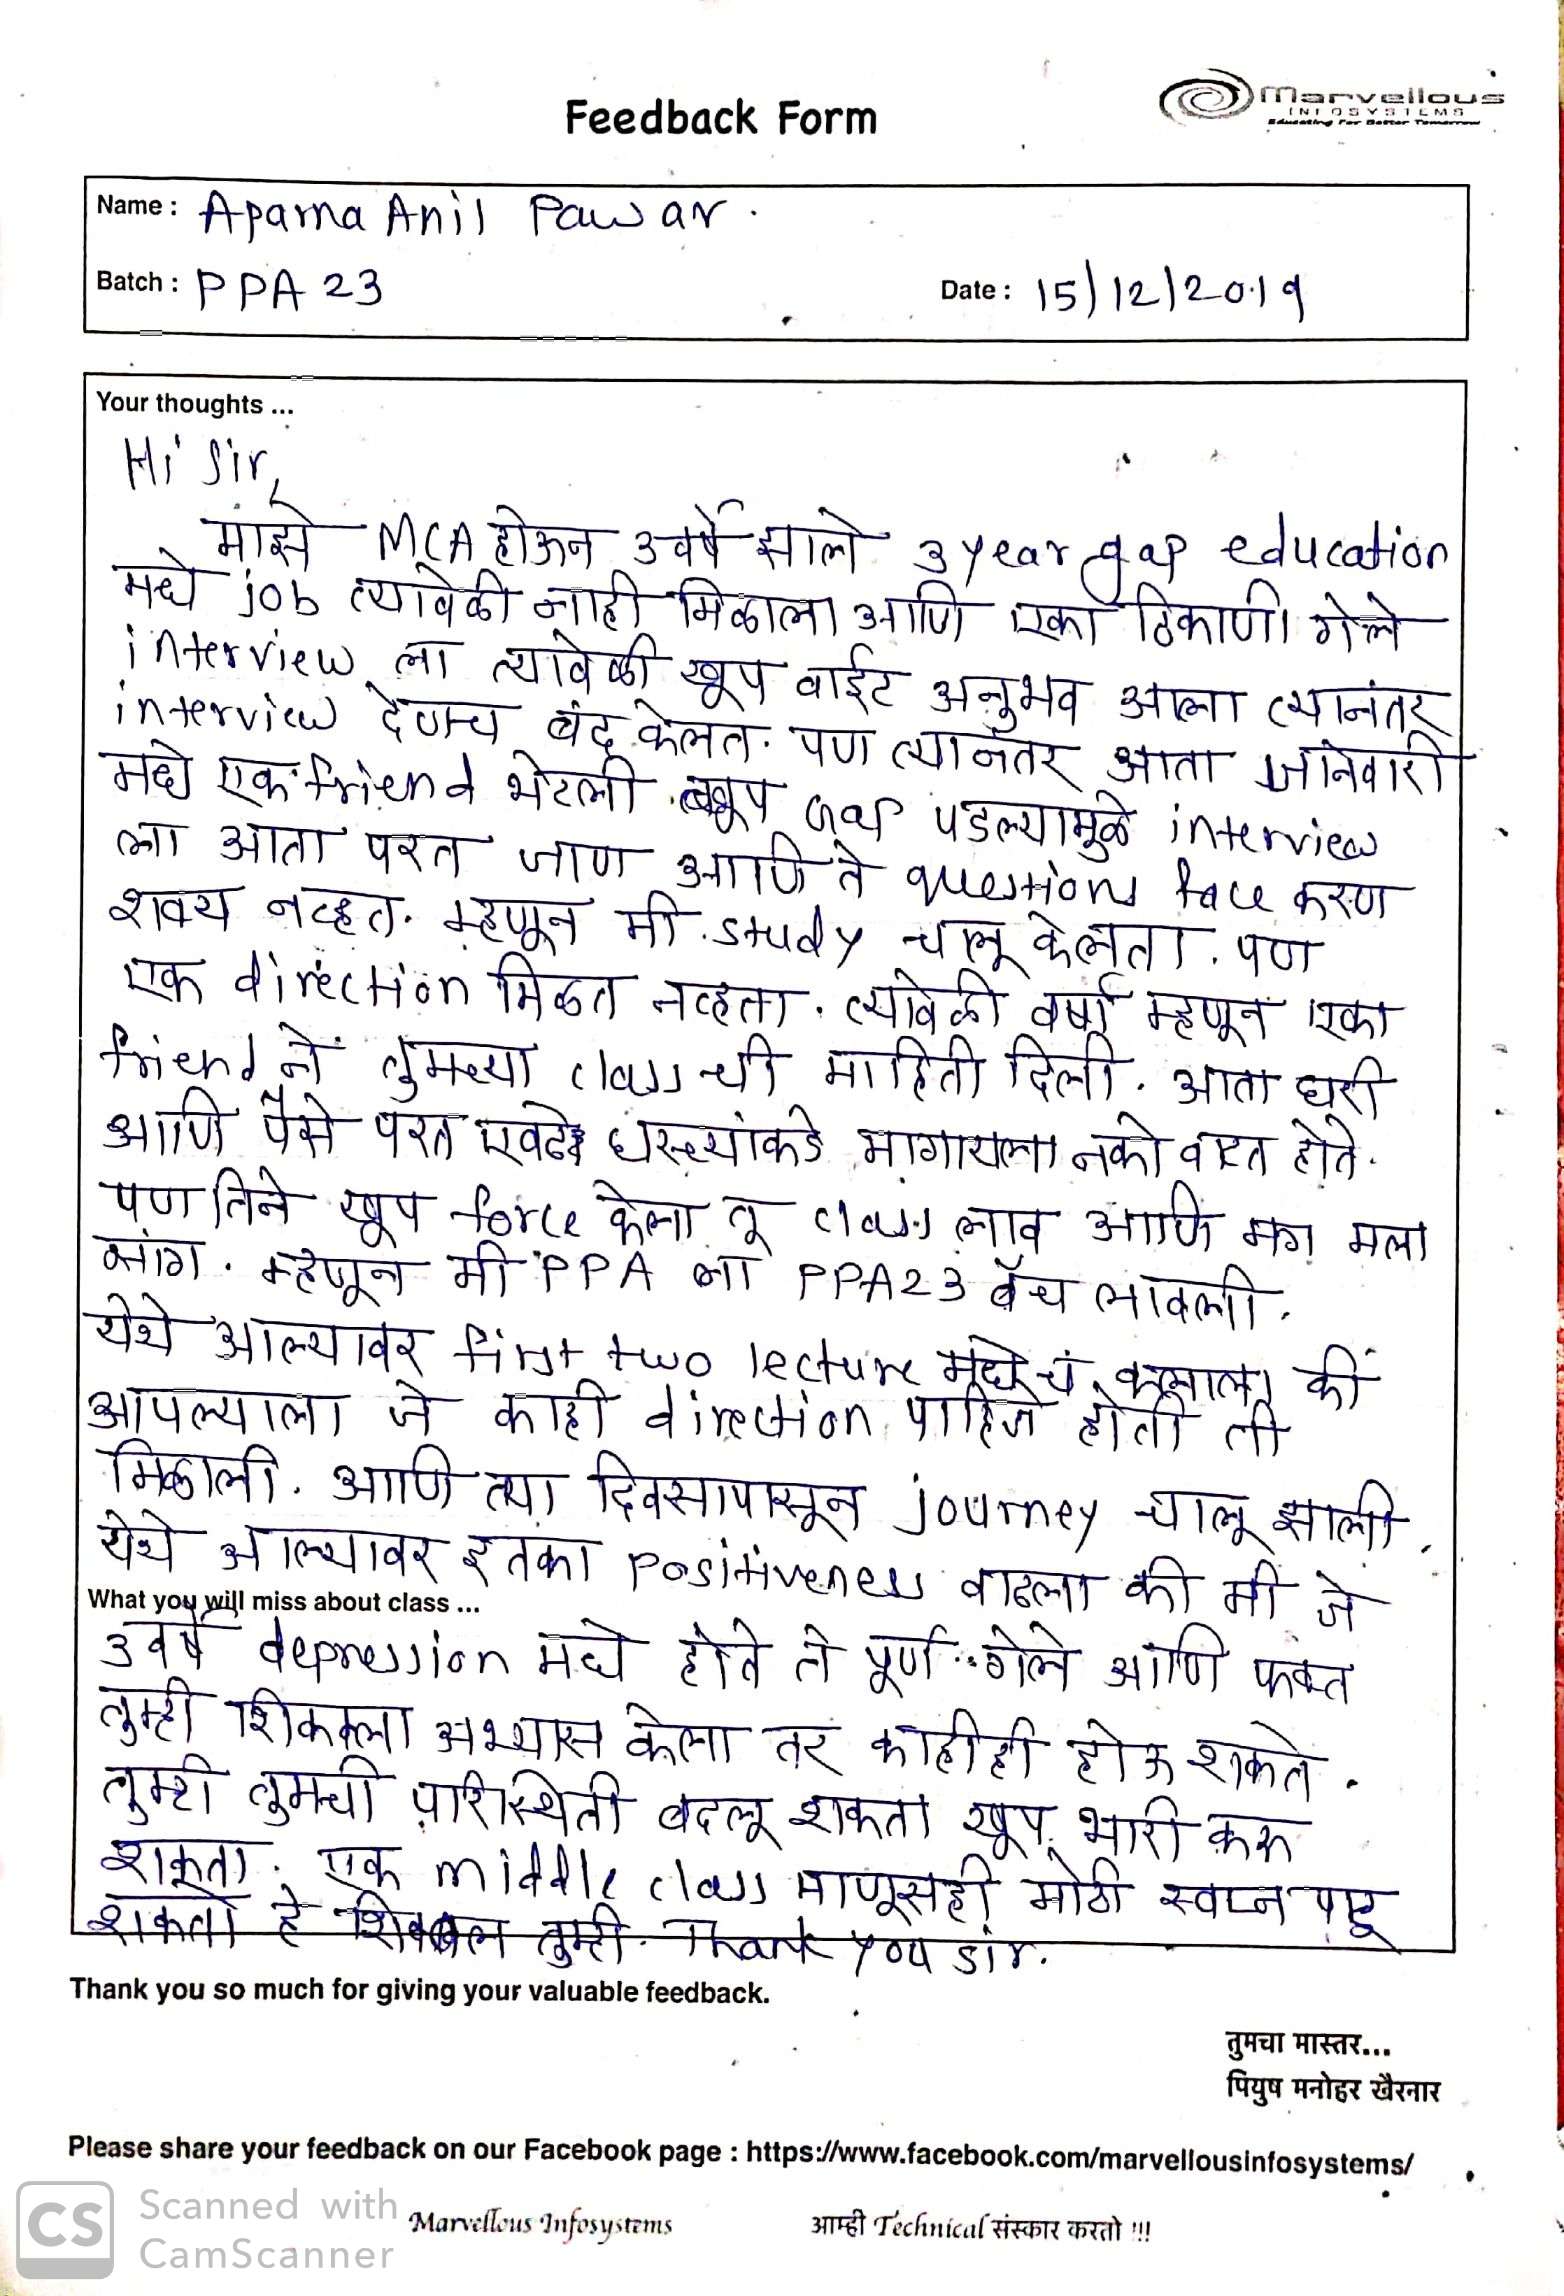 Feedback Form
Marvellous
INFOSYSTEMS
Educating For Better Tomorrow
Name : Aparna Anil Pawar.
Batch : PPA 23
Date : 15/12/2019
Your thoughts ...
Hi Sir,
माझे MCA होऊन 3 वर्षे झाले 3 year gap education
मधे job त्यावेळी नाही मिळाला आणि एका ठिकाणी गेले
interview ला त्यावेळी खूप वाईट अनुभव आला त्यानंतर
interview देणच बंद केलत. पण त्यानंतर आता जानेवारी
मधे एक friend भेटली. खूप Gap पडल्यामुळे interview
ला आता परत जाण आणि ते questions face करण
शक्य नव्हत. म्हणून मी study चालू केलता. पण
एक direction मिळत नव्हता. त्यावेळी वर्षा म्हणून एका
friend ने तुमच्या class ची माहिती दिली. आता घरी
आणि पैसे परत एवढे घरच्यांकडे मागायला नको वाटत होते.
पण तिने खूप force केला तू class लाव आणि मग मला
सांग. म्हणून मी PPA ला PPA23 बॅच लावली.
येथे आल्यावर first two lecture मधेचं कळाल की
आपल्याला जे काही direction पाहिजे होती ती
मिळाली. आणि त्या दिवसापासून journey चालू झाली.
येथे आल्यावर इतका positiveness वाढला की मी जे
What you will miss about class ...
3 वर्षे depression मधे होते ते पूर्ण गेले आणि फक्त
तुम्ही शिकला अभ्यास केला तर काहीही होऊ शकते.
तुम्ही तुमची परिस्थिती बदलू शकता खूप भारी करू
शकता. एक middle class माणूसही मोठी स्वप्न पाहू
शकतो हे शिकवल तुम्ही. Thank you sir.
Thank you so much for giving your valuable feedback.
तुमचा मास्तर...
पियुष मनोहर खैरनार
Please share your feedback on our Facebook page : https://www.facebook.com/marvellousinfosystems/
CS Scanned with
CamScanner
Marvellous Infosystems आम्ही Technical संस्कार करतो !!!